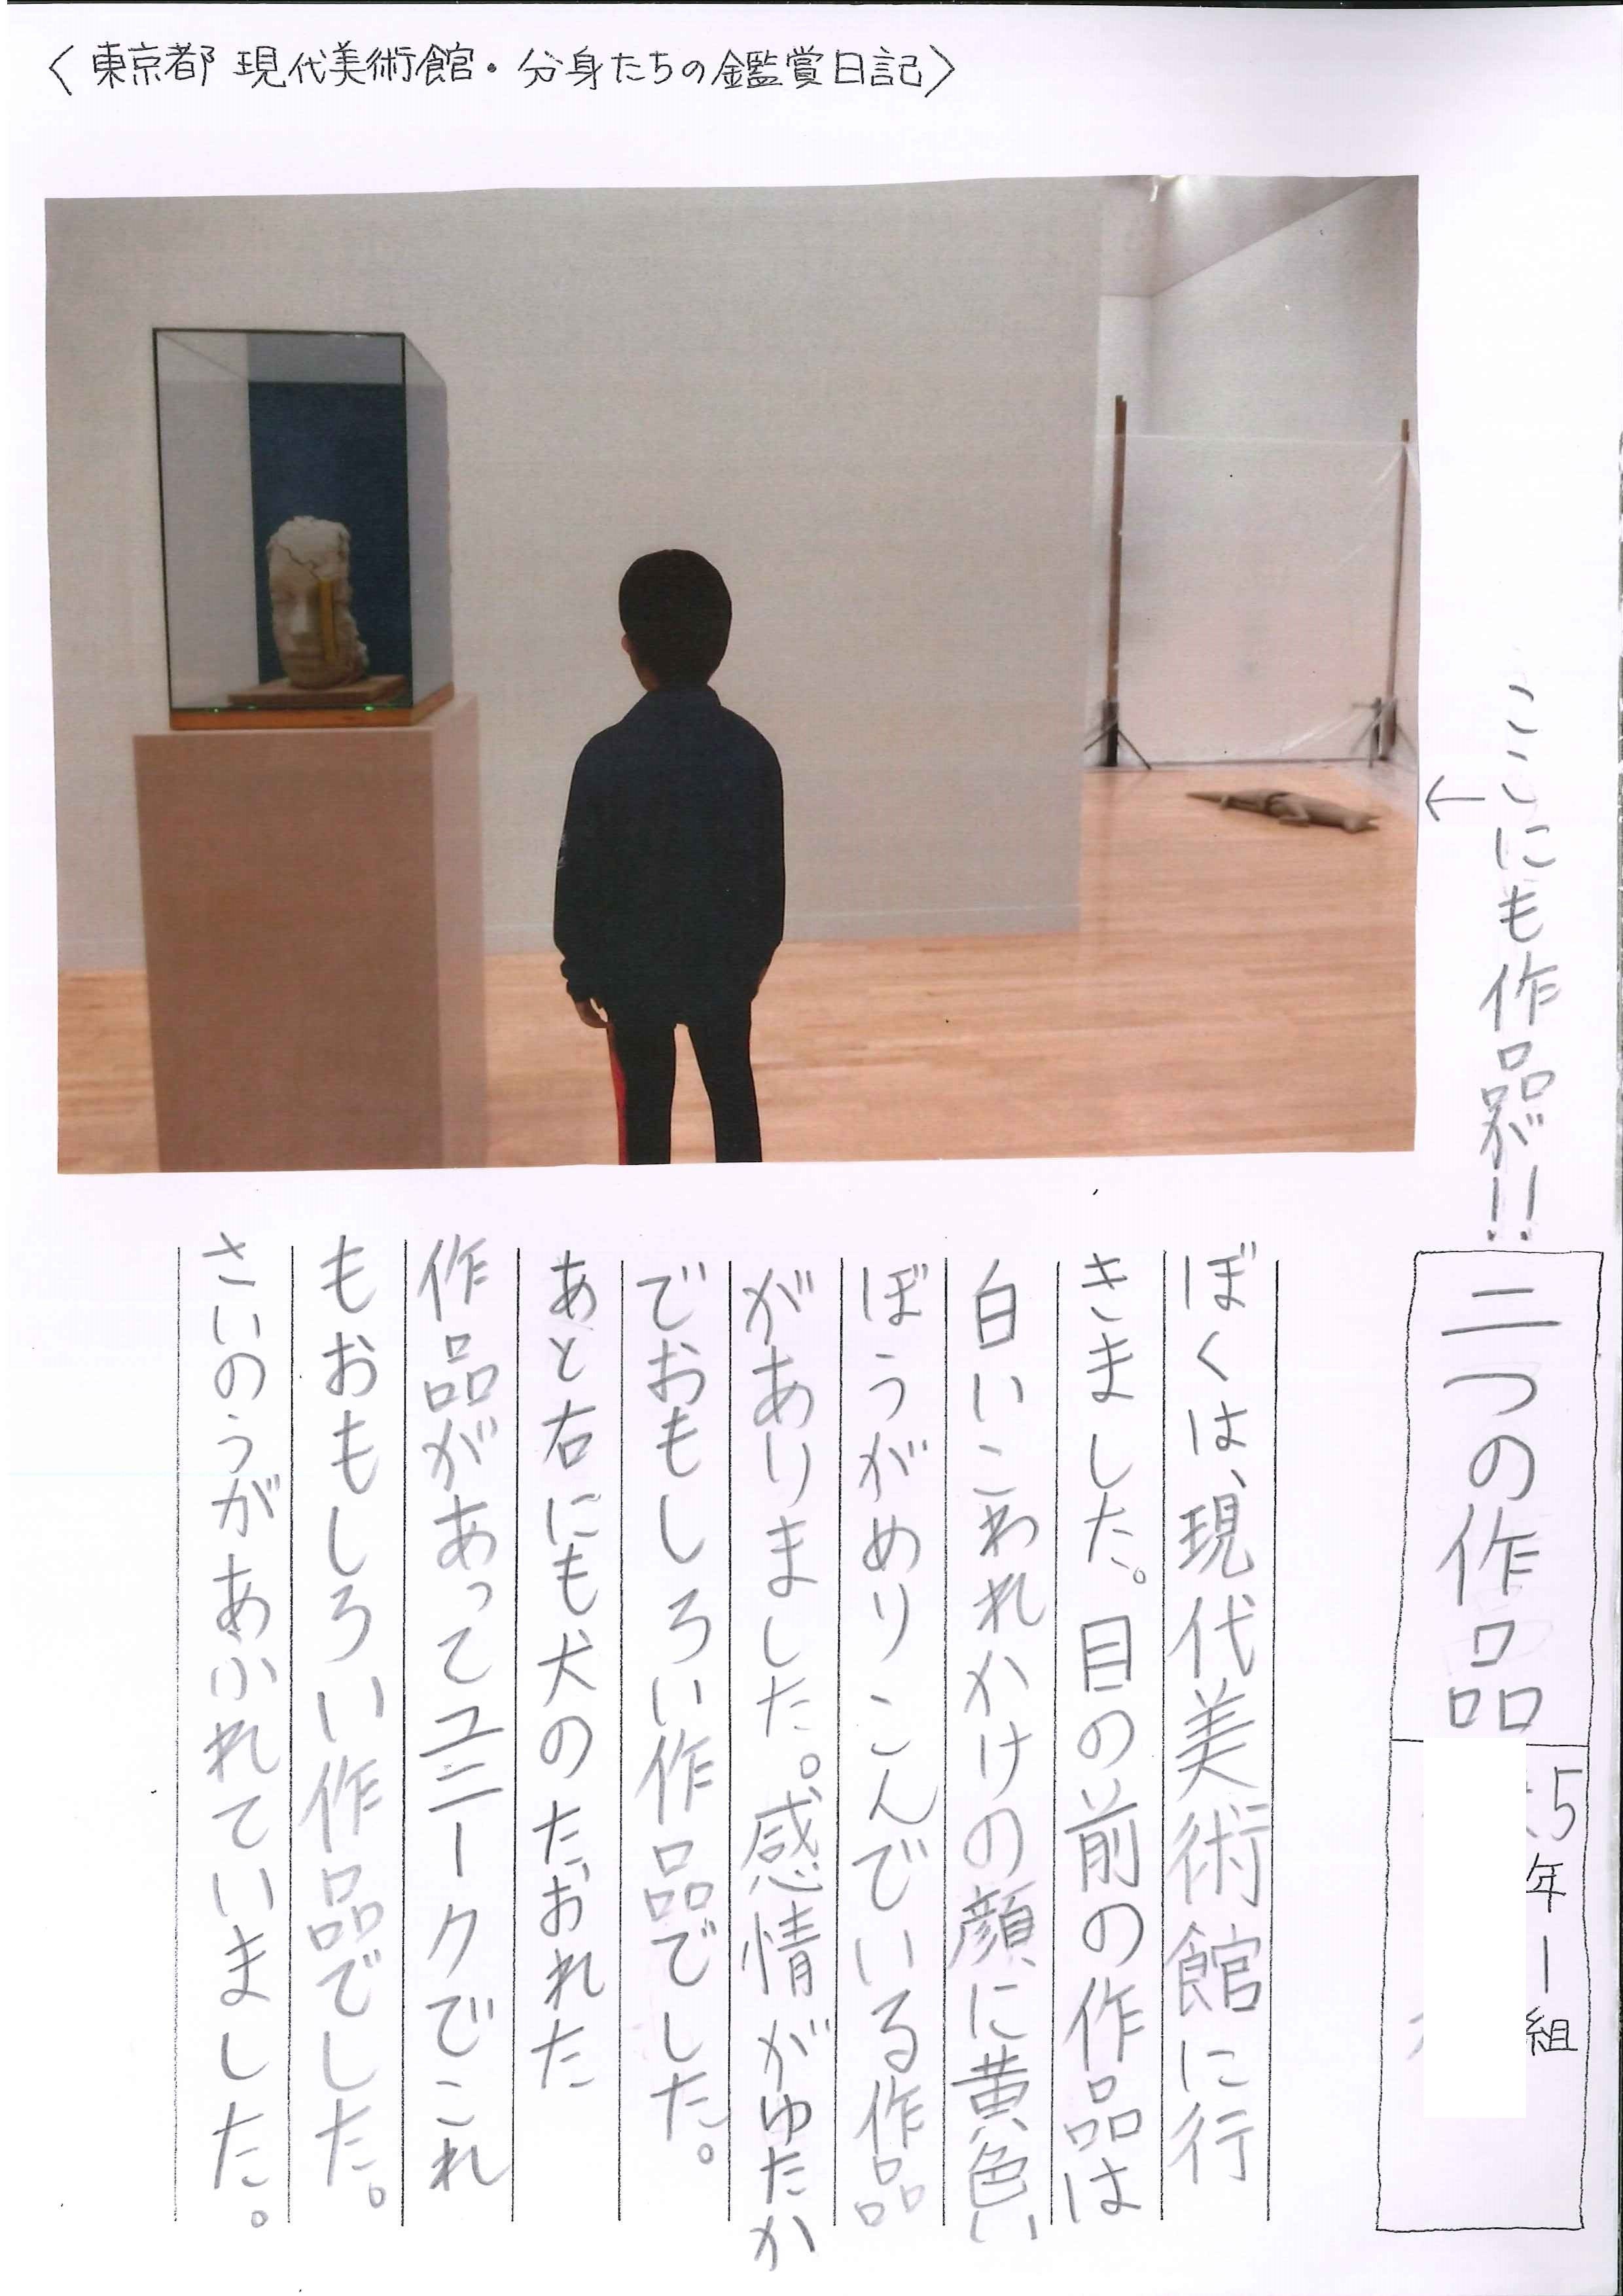 〈東京都現代美術館・分身たちの鑑賞日記〉
ここにも作品が!!
←
二つの作品
5年1組
ぼくは、現代美術館に行
きました。目の前の作品は
白いこわれかけの顔に黄色い
ぼうがめりこんでいる作品
がありました。感情がゆたか
でおもしろい作品でした。
あと右にも犬のたおれた
作品があってユニークでこれ
もおもしろい作品でした。
さいのうがあふれていました。